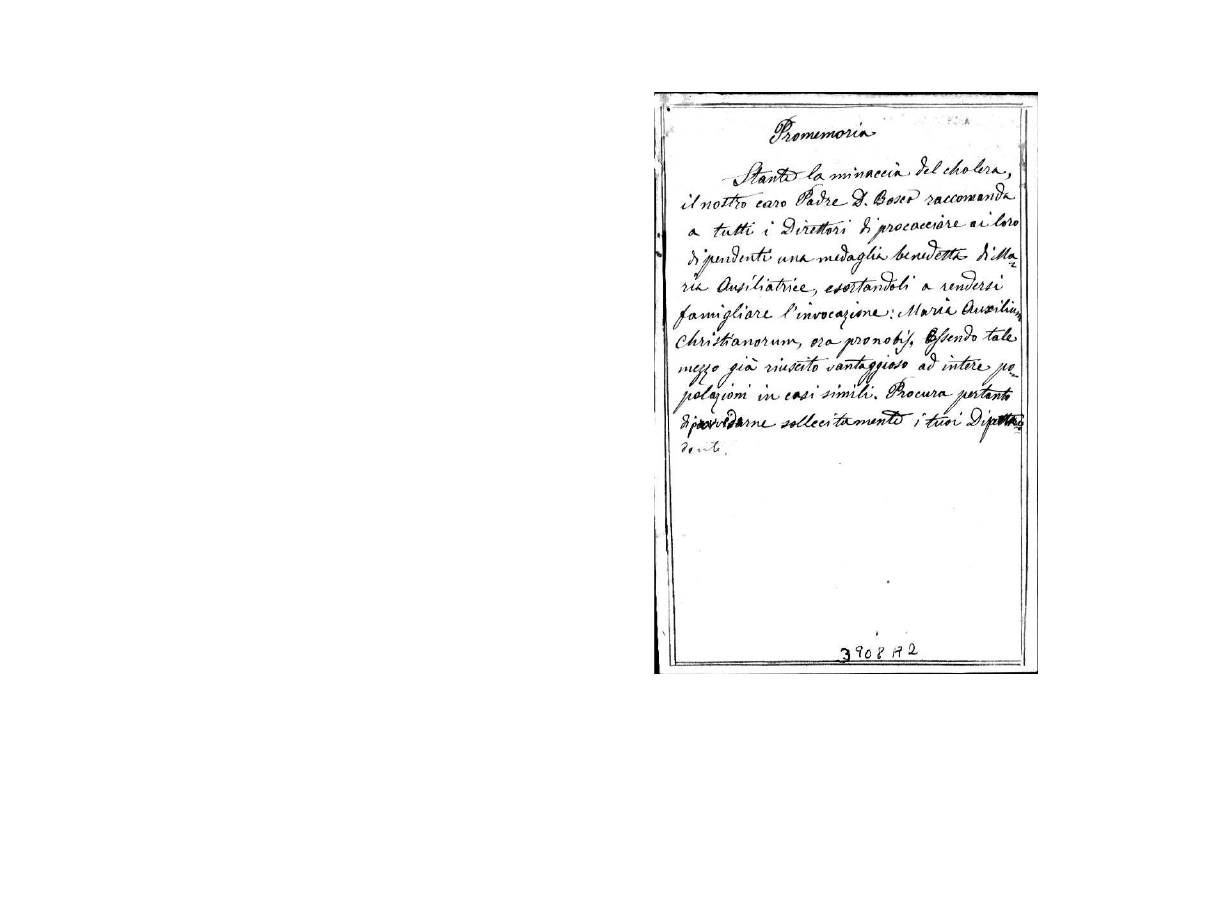 Promemoria
Stante la minaccia del cholera,
il nostro caro Padre D. Bosco raccomanda
a tutti i Direttori di procacciare ai loro
dipendenti una medaglia benedetta di Ma=
ria Ausiliatrice, esortandoli a rendersi
famigliare l'invocazione: Maria Auxilium
Christianorum, ora pro nobis. Essendo tale
mezzo già riuscito vantaggioso ad intere po=
polazioni in casi simili. Procura pertanto
di provvedarne sollecitamente i tuoi Dipen=
denti.
3908 A2